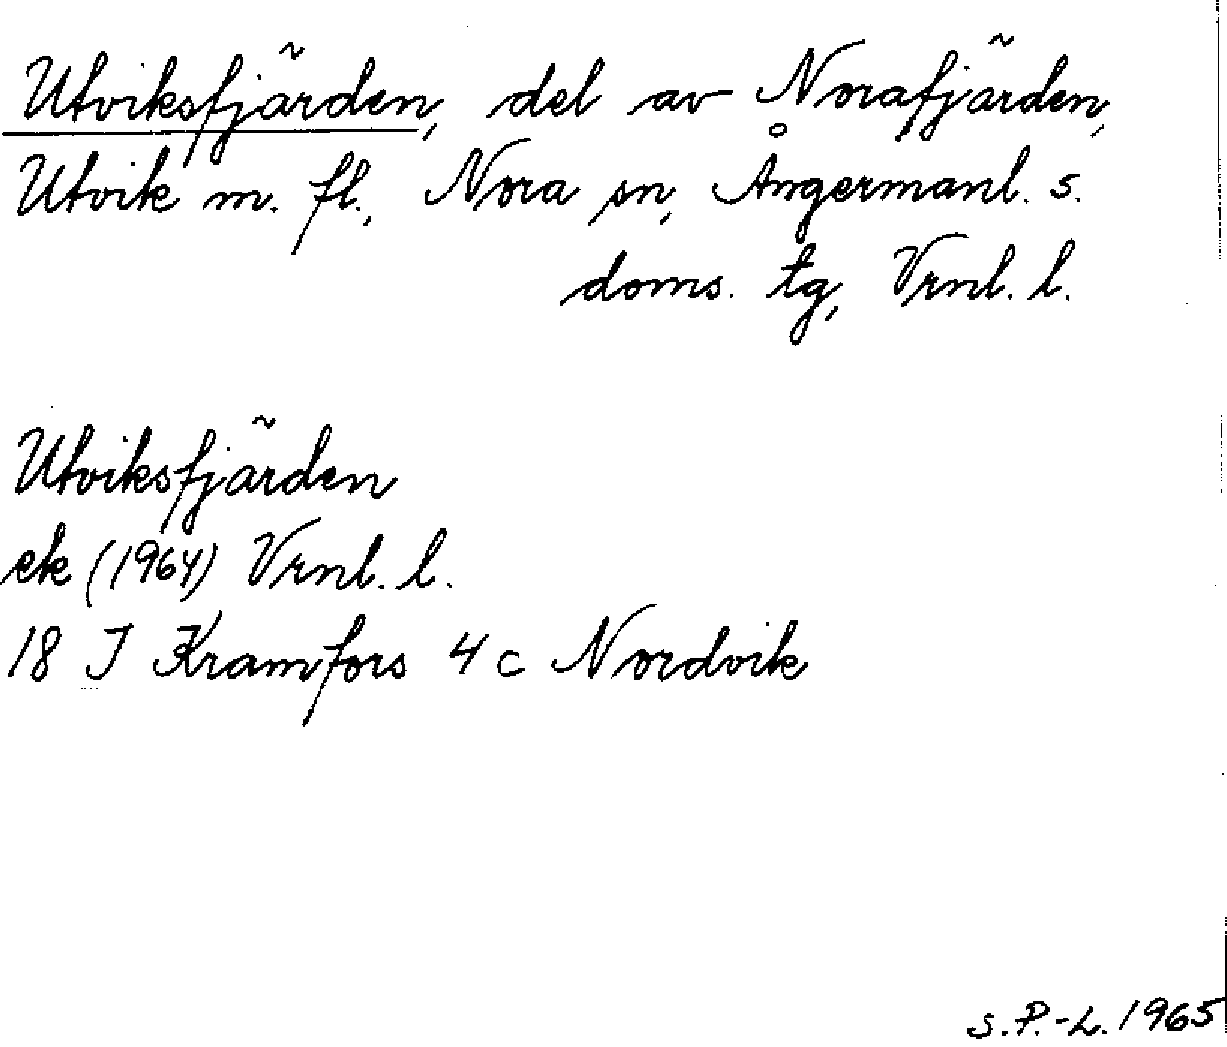 Utviksfjärden, del av Norafjärden,
Utvik m. fl., Nora sn, Ångermanl. s.
doms. tg, Vrnl. l.
Utviksfjärden
ek (1964) Vrnl. l.
18 I Kramfors 4 c Nordvik
S.P.-L. 1965